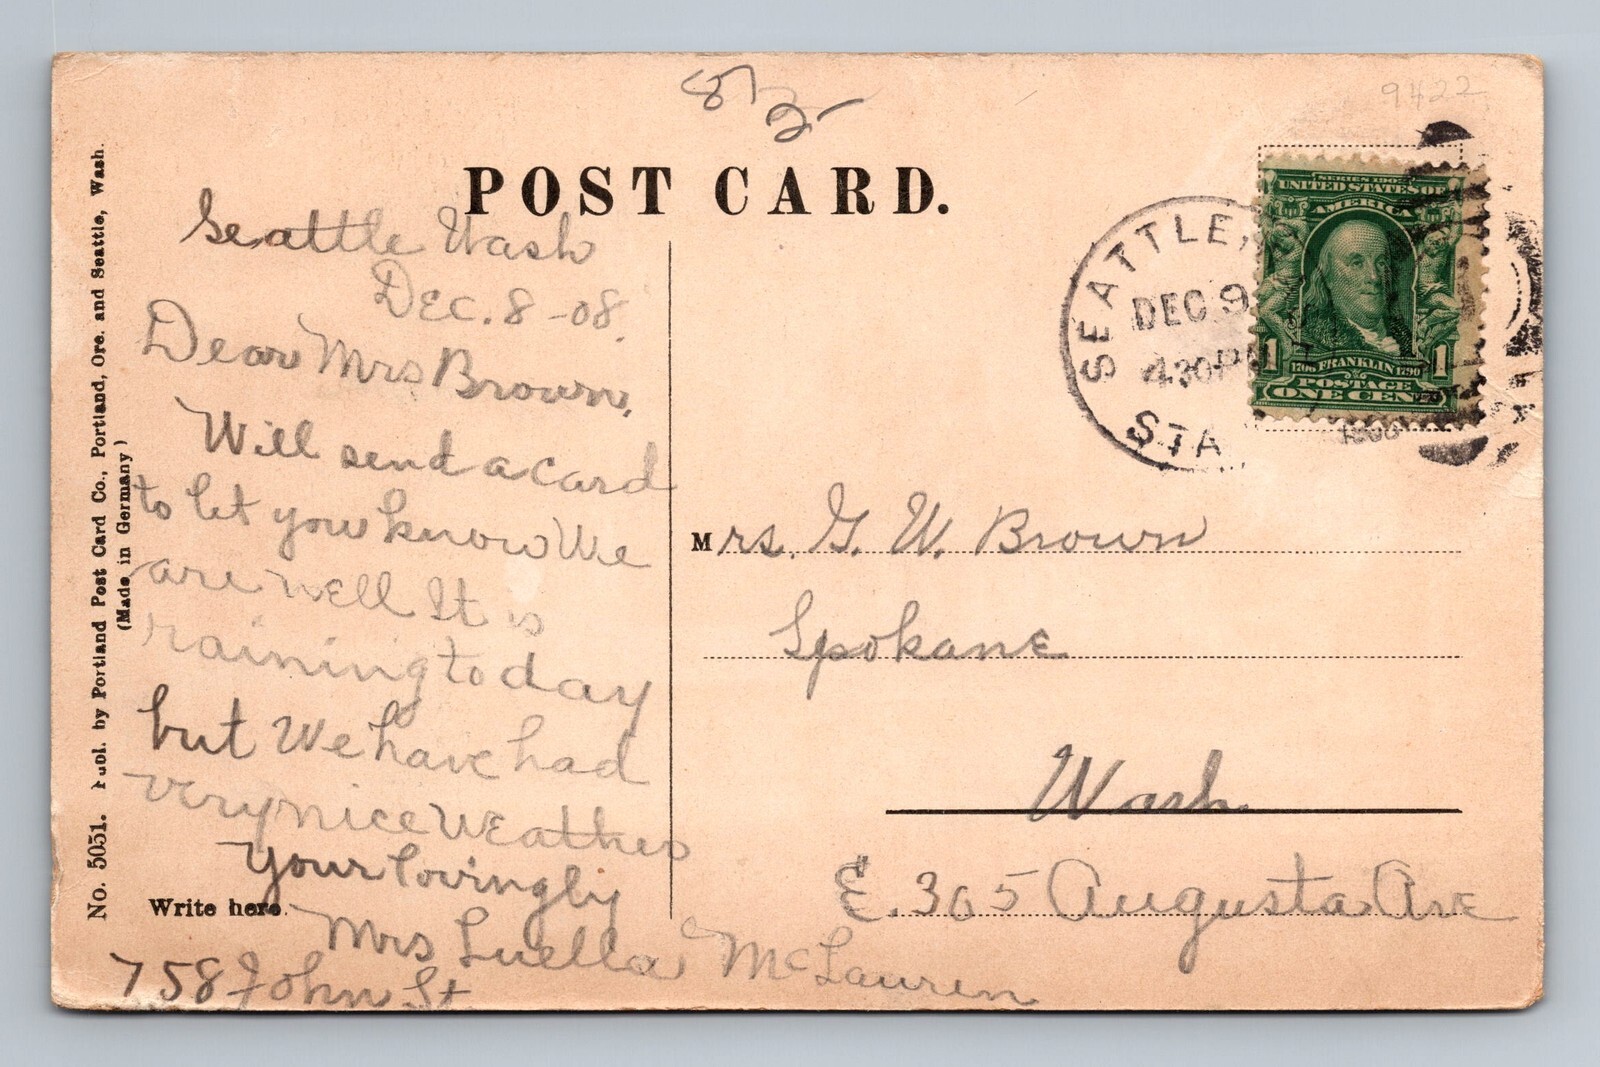 8 1/2
9422
POST CARD.
SERIES 1902
UNITED STATES OF
AMERICA
1706 FRANKLIN 1790
POSTAGE
1 1
ONE CENT
SEATTLE,
DEC 9
4:30 PM
STA
1908
Seattle Wash
Dec. 8-08.
Dear Mrs Brown,
Will send a card
to let you know We
are well It is
raining today
but We have had
very nice weather
your lovingly
Mrs Luella McLauren
758 John St
Write here.
Mrs. G. W. Brown
Spokane
Wash.
E. 305 Augusta Ave
No. 5051. Publ. by Portland Post Card Co., Portland, Ore. and Seattle, Wash.
(Made in Germany)